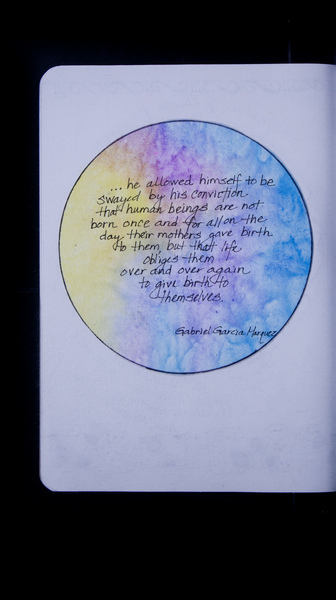 ... he allowed himself to be
swayed by his conviction
that human beings are not
born once and for all on the
day their mothers gave birth
to them, but that life
obliges them
over and over again
to give birth to
themselves.
Gabriel Garcia Marquez